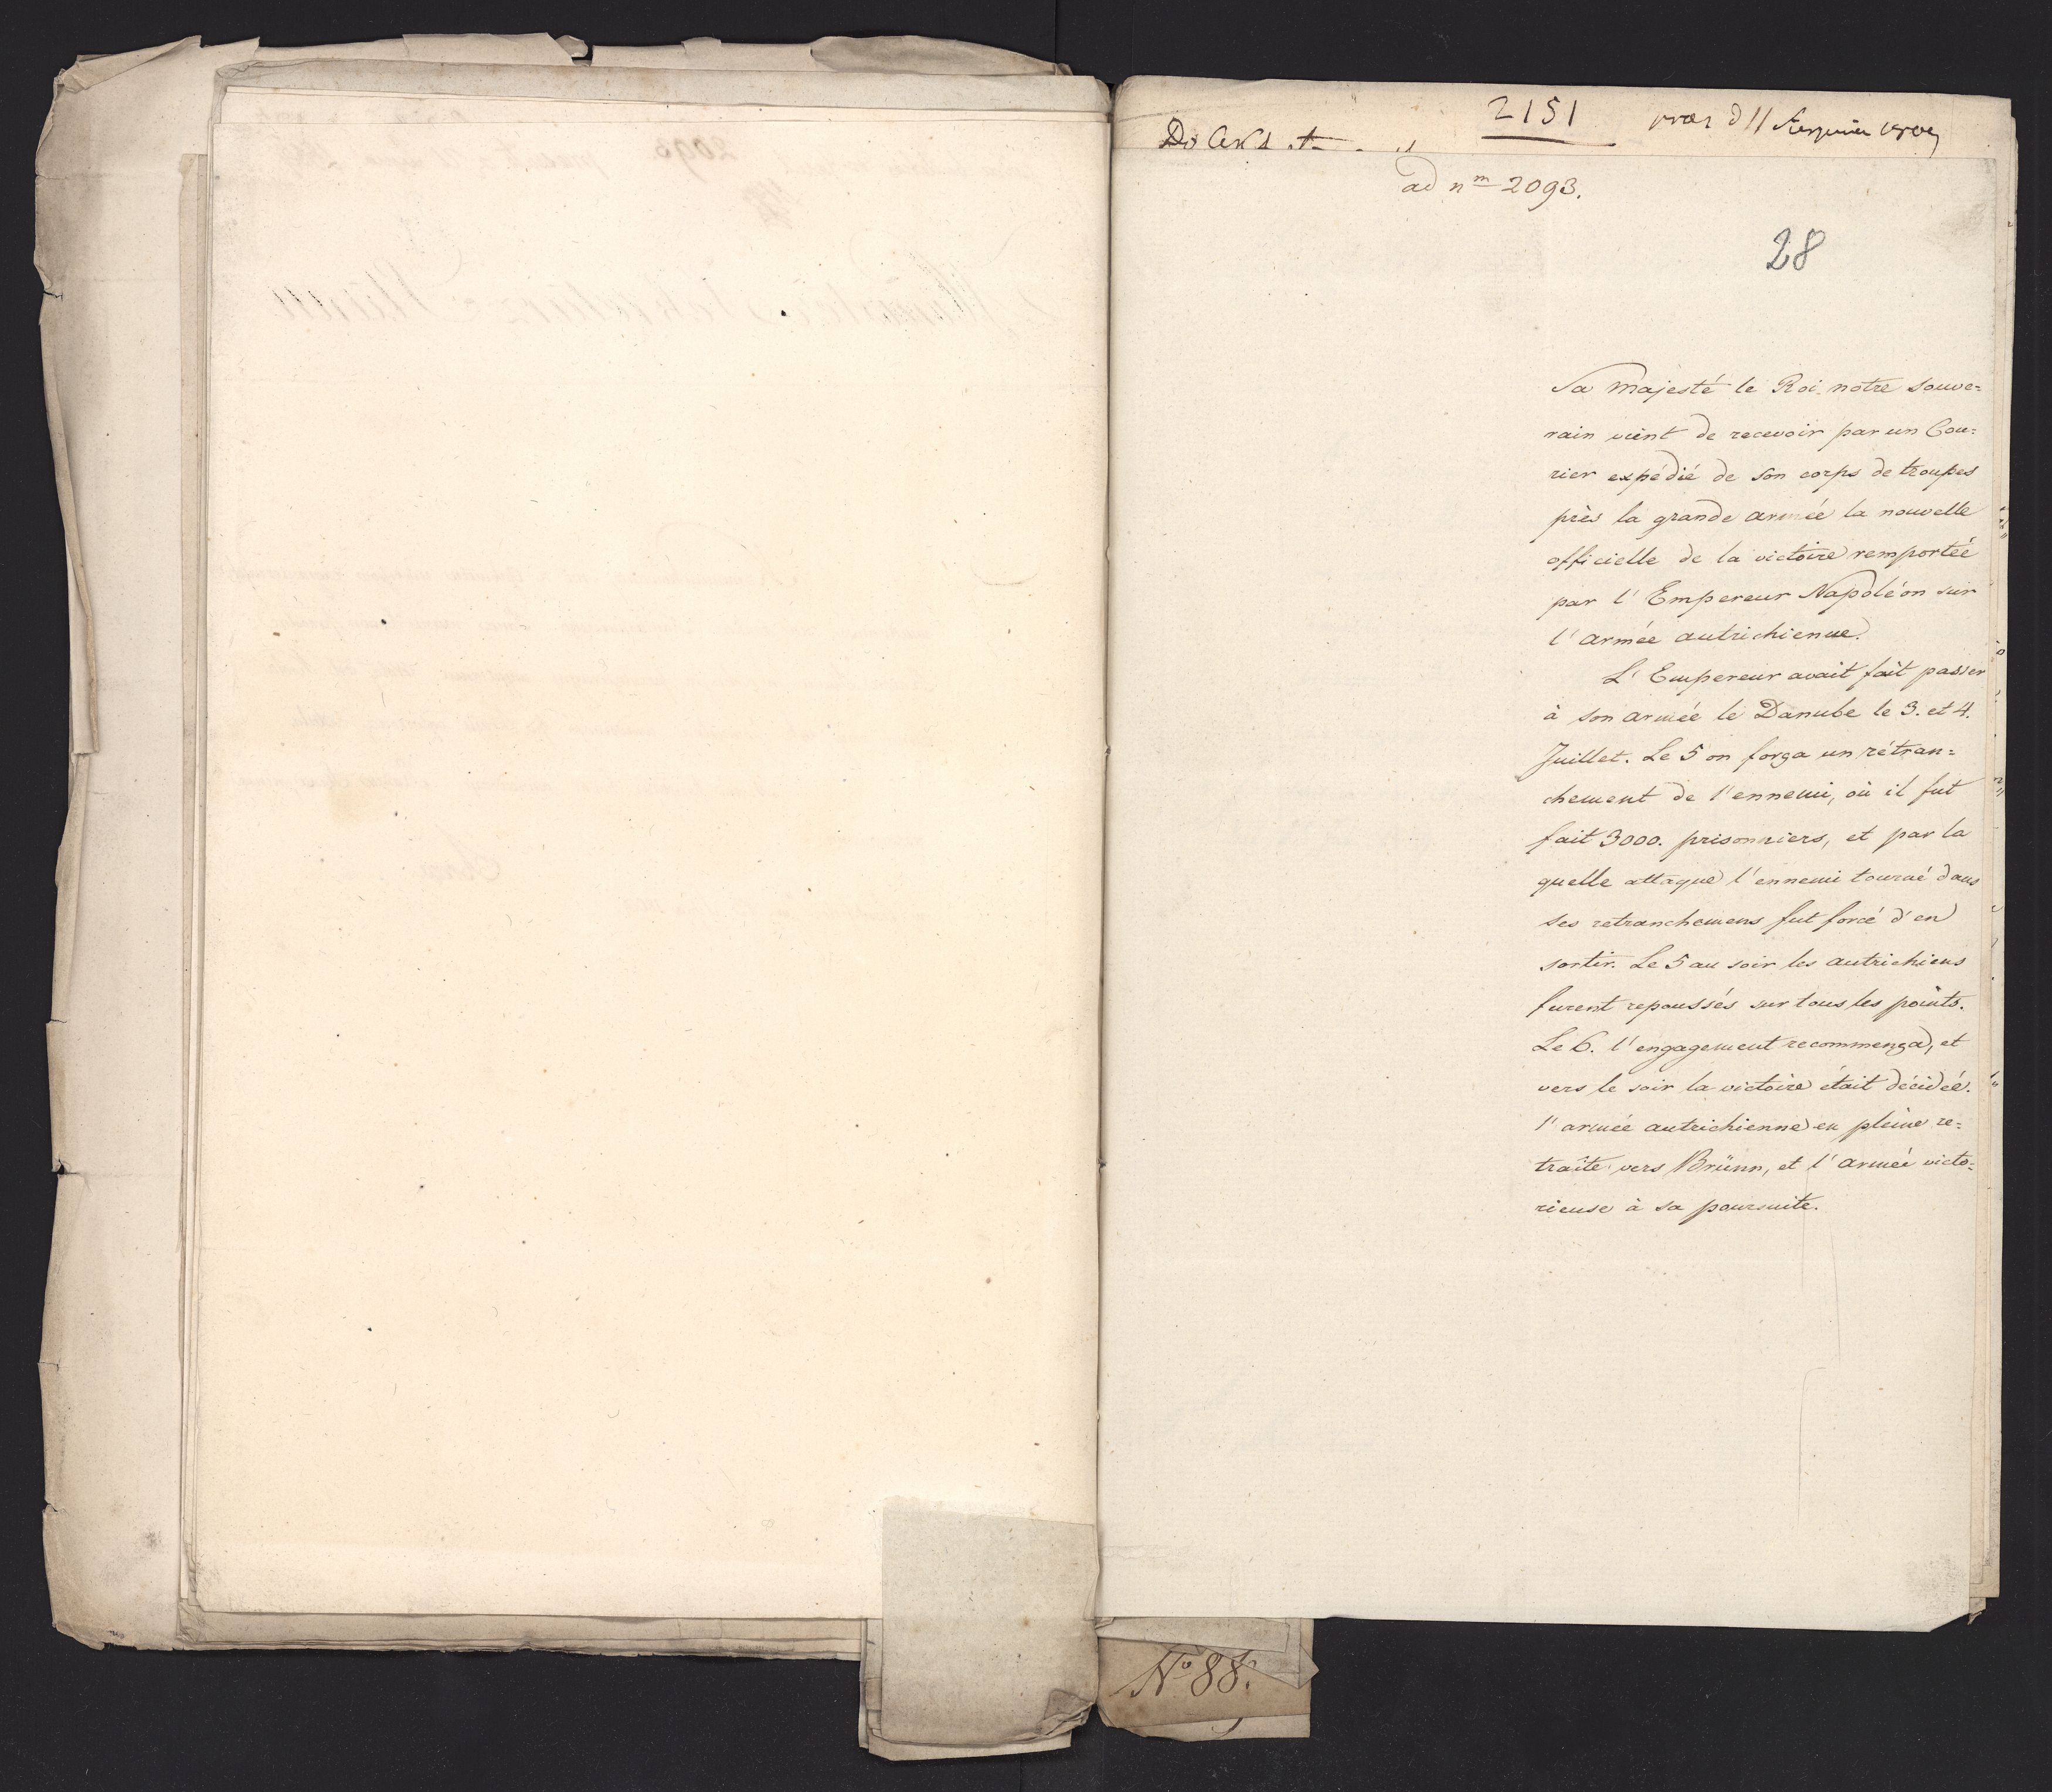 2151
ad nm 2093.
28
Sa Majesté le Roi notre Souve=
rain vient de recevoir par un Cou=
rier expédié de son corps de troupes
près la grande armée la nouvelle
officielle de la victoire remportée
par l'Empereur Napoléon sur
l'armée autrichienne.
L'Empereur avait fait passer
à son armée le Danube le 3. et 4.
Juillet. Le 5 on força un rétran=
chement de l'ennemi, où il fut
fait 3000. prisonniers, et par la
quelle attaque l'ennemi tourné dans
ses retranchemens fut forcé d'en
sortir. Le 5 au soir les autrichiens
furent repoussés sur tous les points.
Le 6. l'engagement recommença, et
vers le soir la victoire était décidée.
l'armée autrichienne en pleine re=
traite vers Brünn, et l'armée victo=
rieuse à sa poursuite.
No 88.